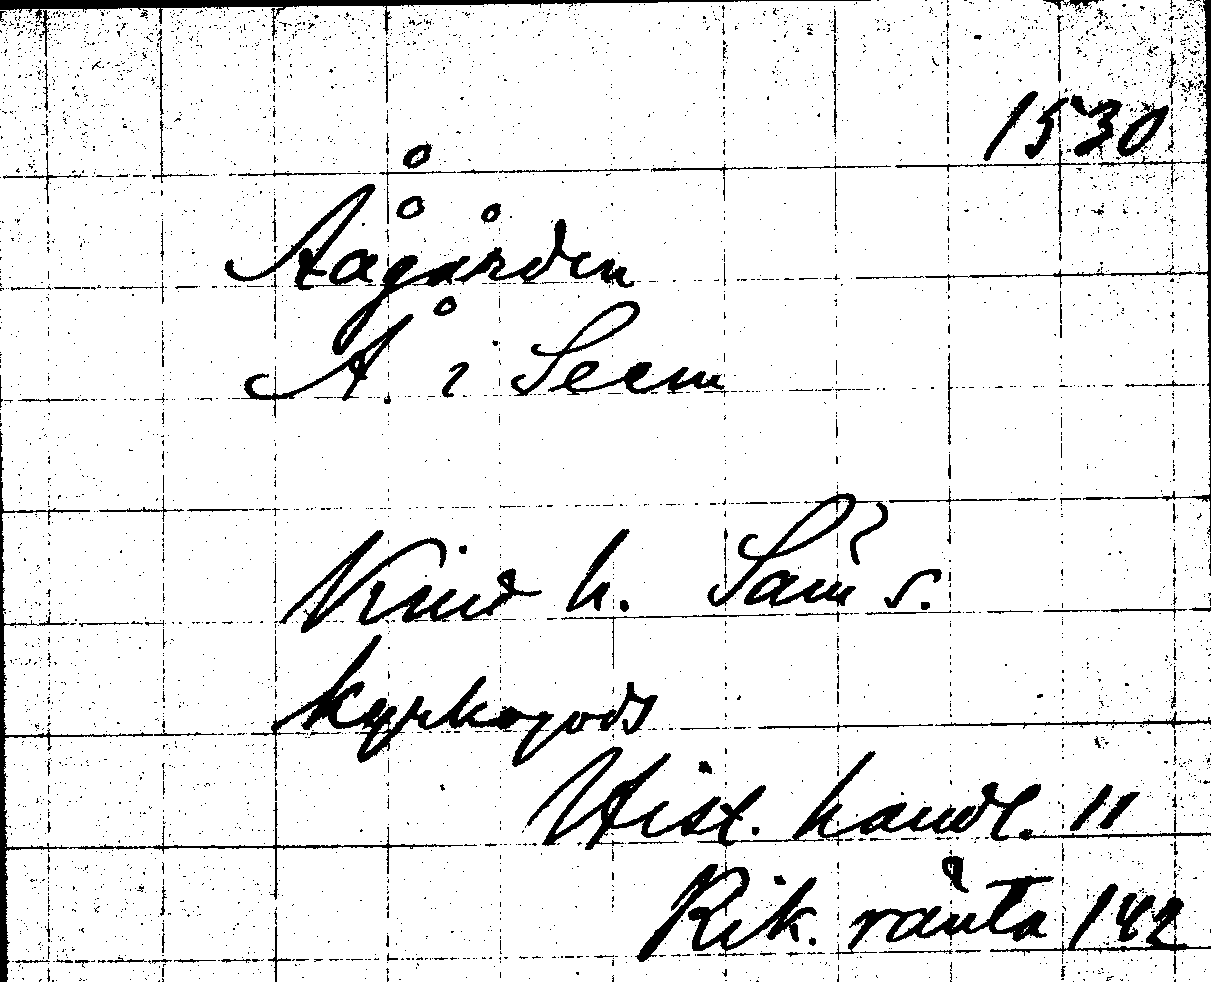 1530
Åågården
Å i Seem
Kind h. Säm s.
kyrkogods
Hist. handl. 11
Rik. ränta 142